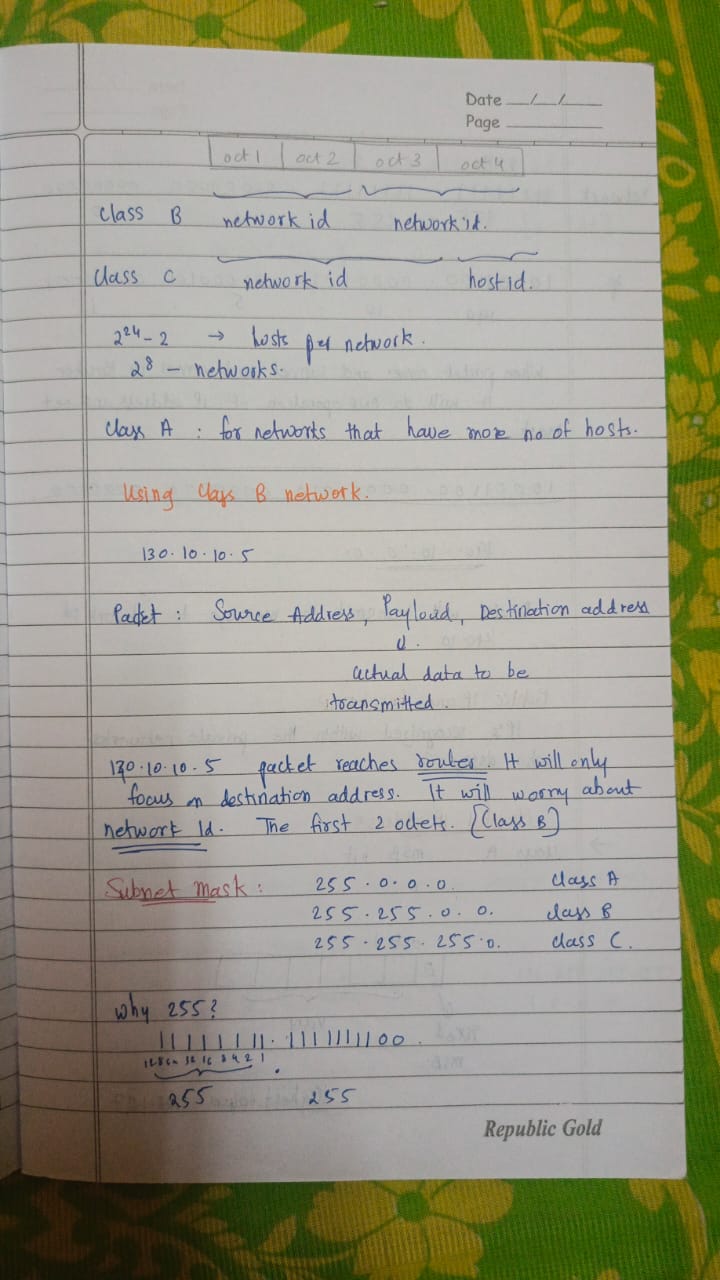 Date __/__/__
Page
oct 1 | oct 2 | oct 3 | oct 4
Class B network id network id.
Class C network id host id.
2²⁴ - 2 → hosts per network.
2⁸ - networks.
Class A : for networks that have more no of hosts.
Using Class B network.
130.10.10.5
Packet : Source Address, Payload, Destination address
↓
actual data to be
transmitted.
130.10.10.5 packet reaches router. It will only
focus on destination address. It will worry about
network Id. The first 2 octets. [Class B]
Subnet Mask : 255.0.0.0. Class A
255.255.0.0. Class B
255.255.255.0. Class C.
Why 255?
11111111.1111111100.
128 64 32 16 8 4 2 1
255 255
Republic Gold